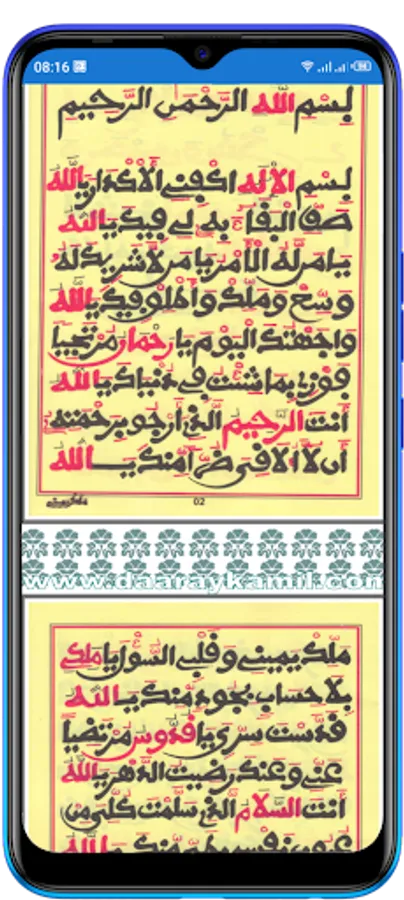 08:16
بسم الله الرحمن الرحيم
بسم الإله اكفني الأكدار يا الله
صف البقا به لي فيك يا الله
يا من له الأمر يا من لا شريك له
وسع وملك وأخلو فيك يا الله
واجهتك اليوم يا رحمان مرتجيا
فوزا بما شئت في دنياك يا الله
أنت الرحيم الذي أرجو برحمته
أن لا ألاقي ضرا منك يا الله
02
www.daaraykamil.com
ملك يميني وقلب السؤل يا ملك
بلا حساب بجود منك يا الله
قدست سري يا قدوس مرتضيا
عني وعنك رضيت الدهر يا الله
أنت السلام الذي سلمت كلي من